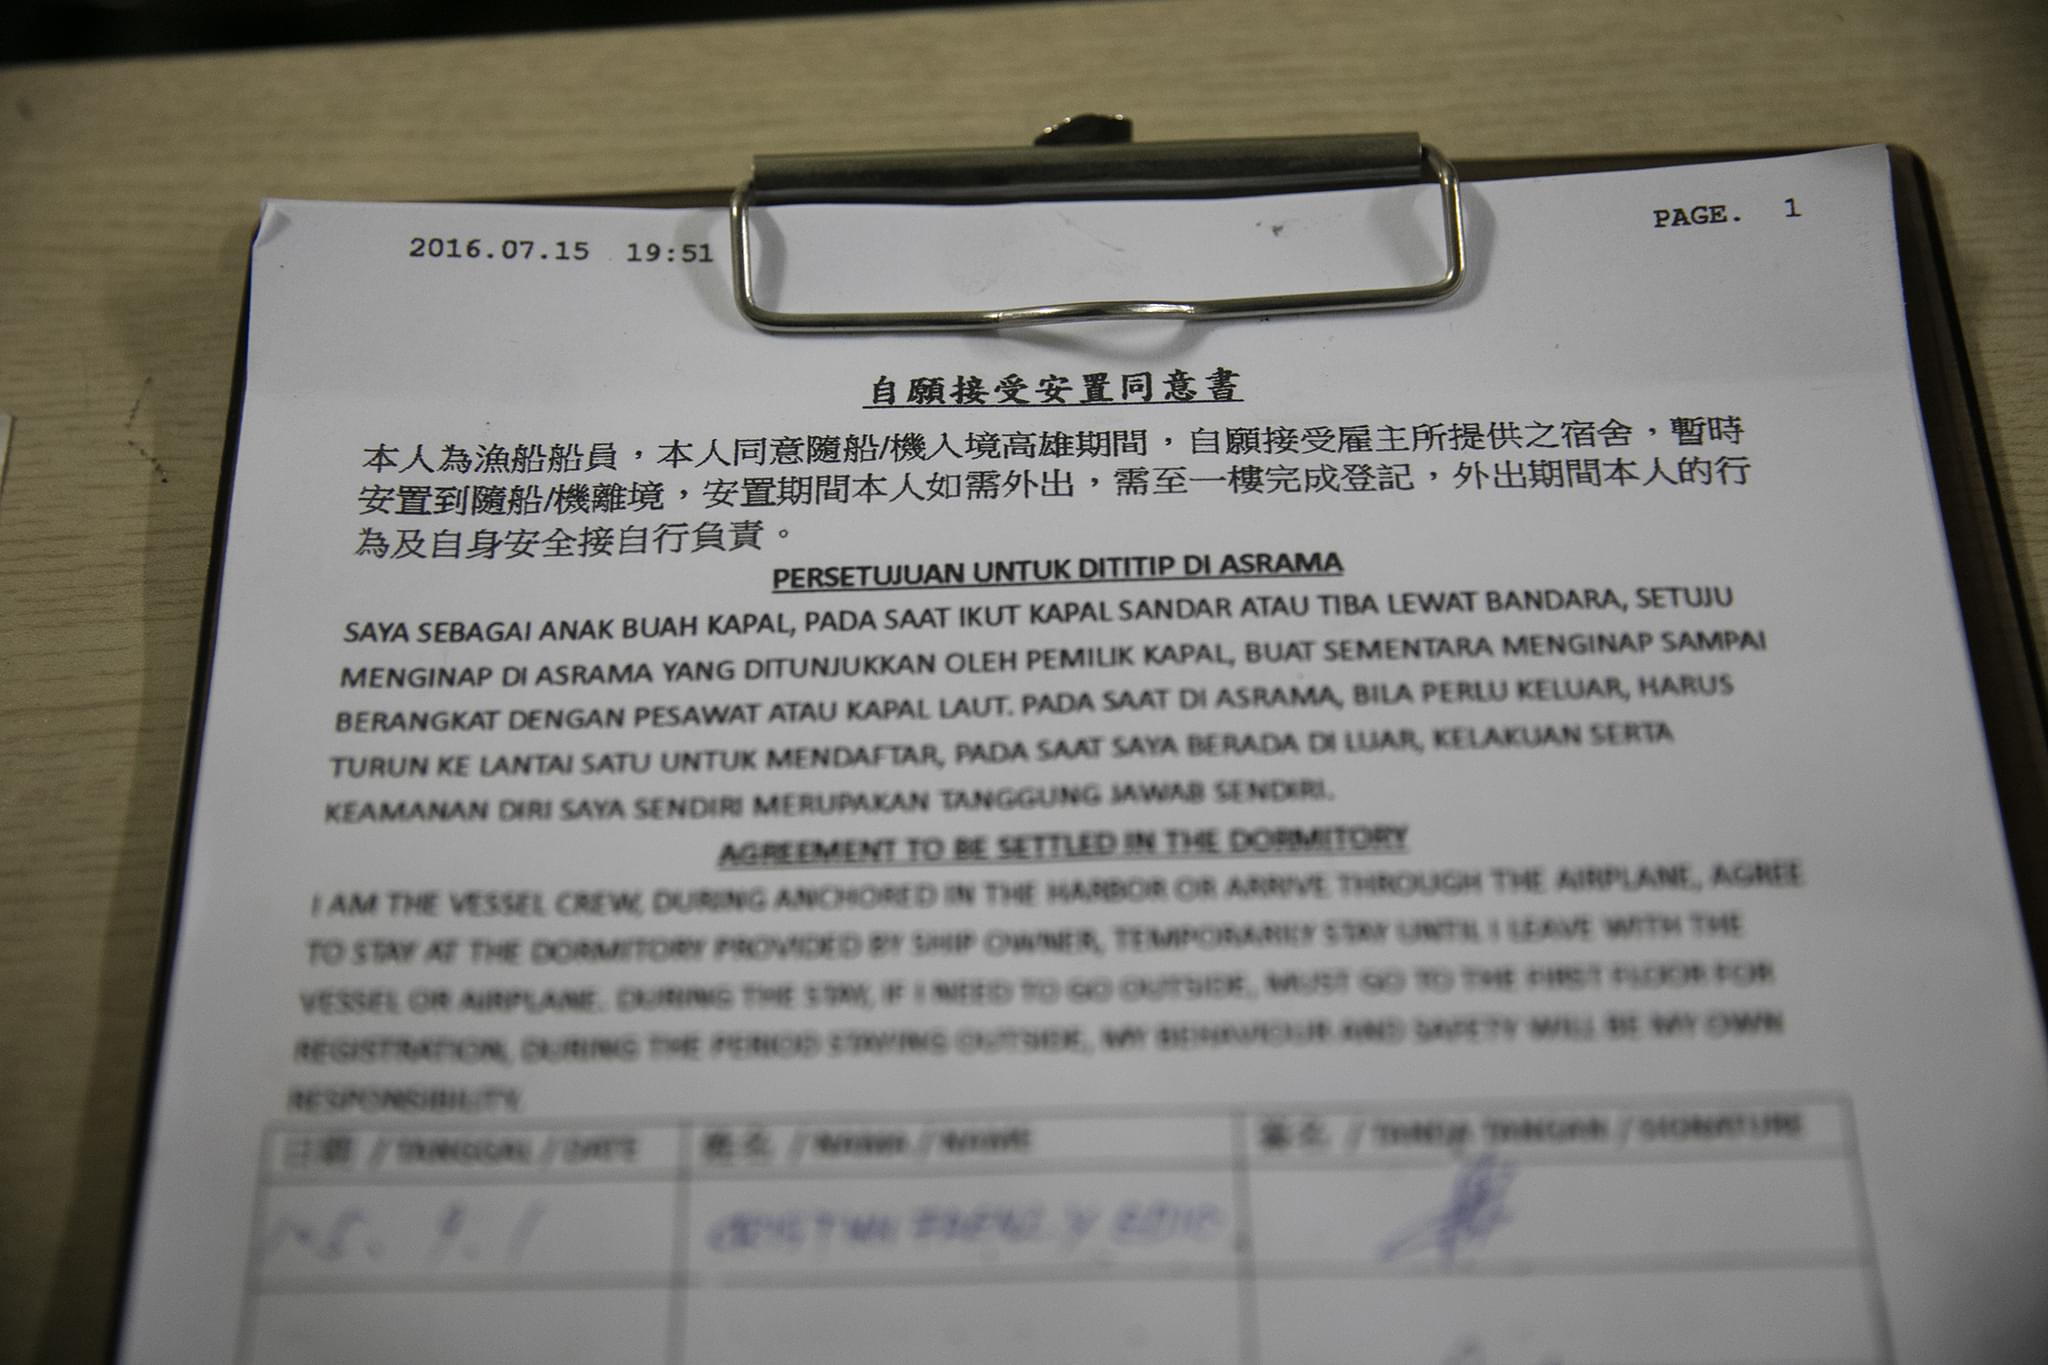 2016.07.15 19:51
PAGE. 1
自願接受安置同意書
本人為漁船船員，本人同意隨船/機入境高雄期間，自願接受雇主所提供之宿舍，暫時
安置到隨船/機離境，安置期間本人如需外出，需至一樓完成登記，外出期間本人的行
為及自身安全接自行負責。
PERSETUJUAN UNTUK DITITIP DI ASRAMA
SAYA SEBAGAI ANAK BUAH KAPAL, PADA SAAT IKUT KAPAL SANDAR ATAU TIBA LEWAT BANDARA, SETUJU
MENGINAP DI ASRAMA YANG DITUNJUKKAN OLEH PEMILIK KAPAL, BUAT SEMENTARA MENGINAP SAMPAI
BERANGKAT DENGAN PESAWAT ATAU KAPAL LAUT. PADA SAAT DI ASRAMA, BILA PERLU KELUAR, HARUS
TURUN KE LANTAI SATU UNTUK MENDAFTAR, PADA SAAT SAYA BERADA DI LUAR, KELAKUAN SERTA
KEAMANAN DIRI SAYA SENDIRI MERUPAKAN TANGGUNG JAWAB SENDIRI.
AGREEMENT TO BE SETTLED IN THE DORMITORY
I AM THE VESSEL CREW, DURING ANCHORED IN THE HARBOR OR ARRIVE THROUGH THE AIRPLANE, AGREE
TO STAY AT THE DORMITORY PROVIDED BY SHIP OWNER, TEMPORARILY STAY UNTIL I LEAVE WITH THE
VESSEL OR AIRPLANE. DURING THE STAY, IF I NEED TO GO OUTSIDE, MUST GO TO THE FIRST FLOOR FOR
REGISTRATION, DURING THE PERIOD STAYING OUTSIDE, MY BEHAVIOUR AND SAFETY WILL BE MY OWN
RESPONSIBILITY.
日期 / TANGGAL / DATE
姓名 / NAMA / NAME
簽名 / TANDA TANGAN / SIGNATURE